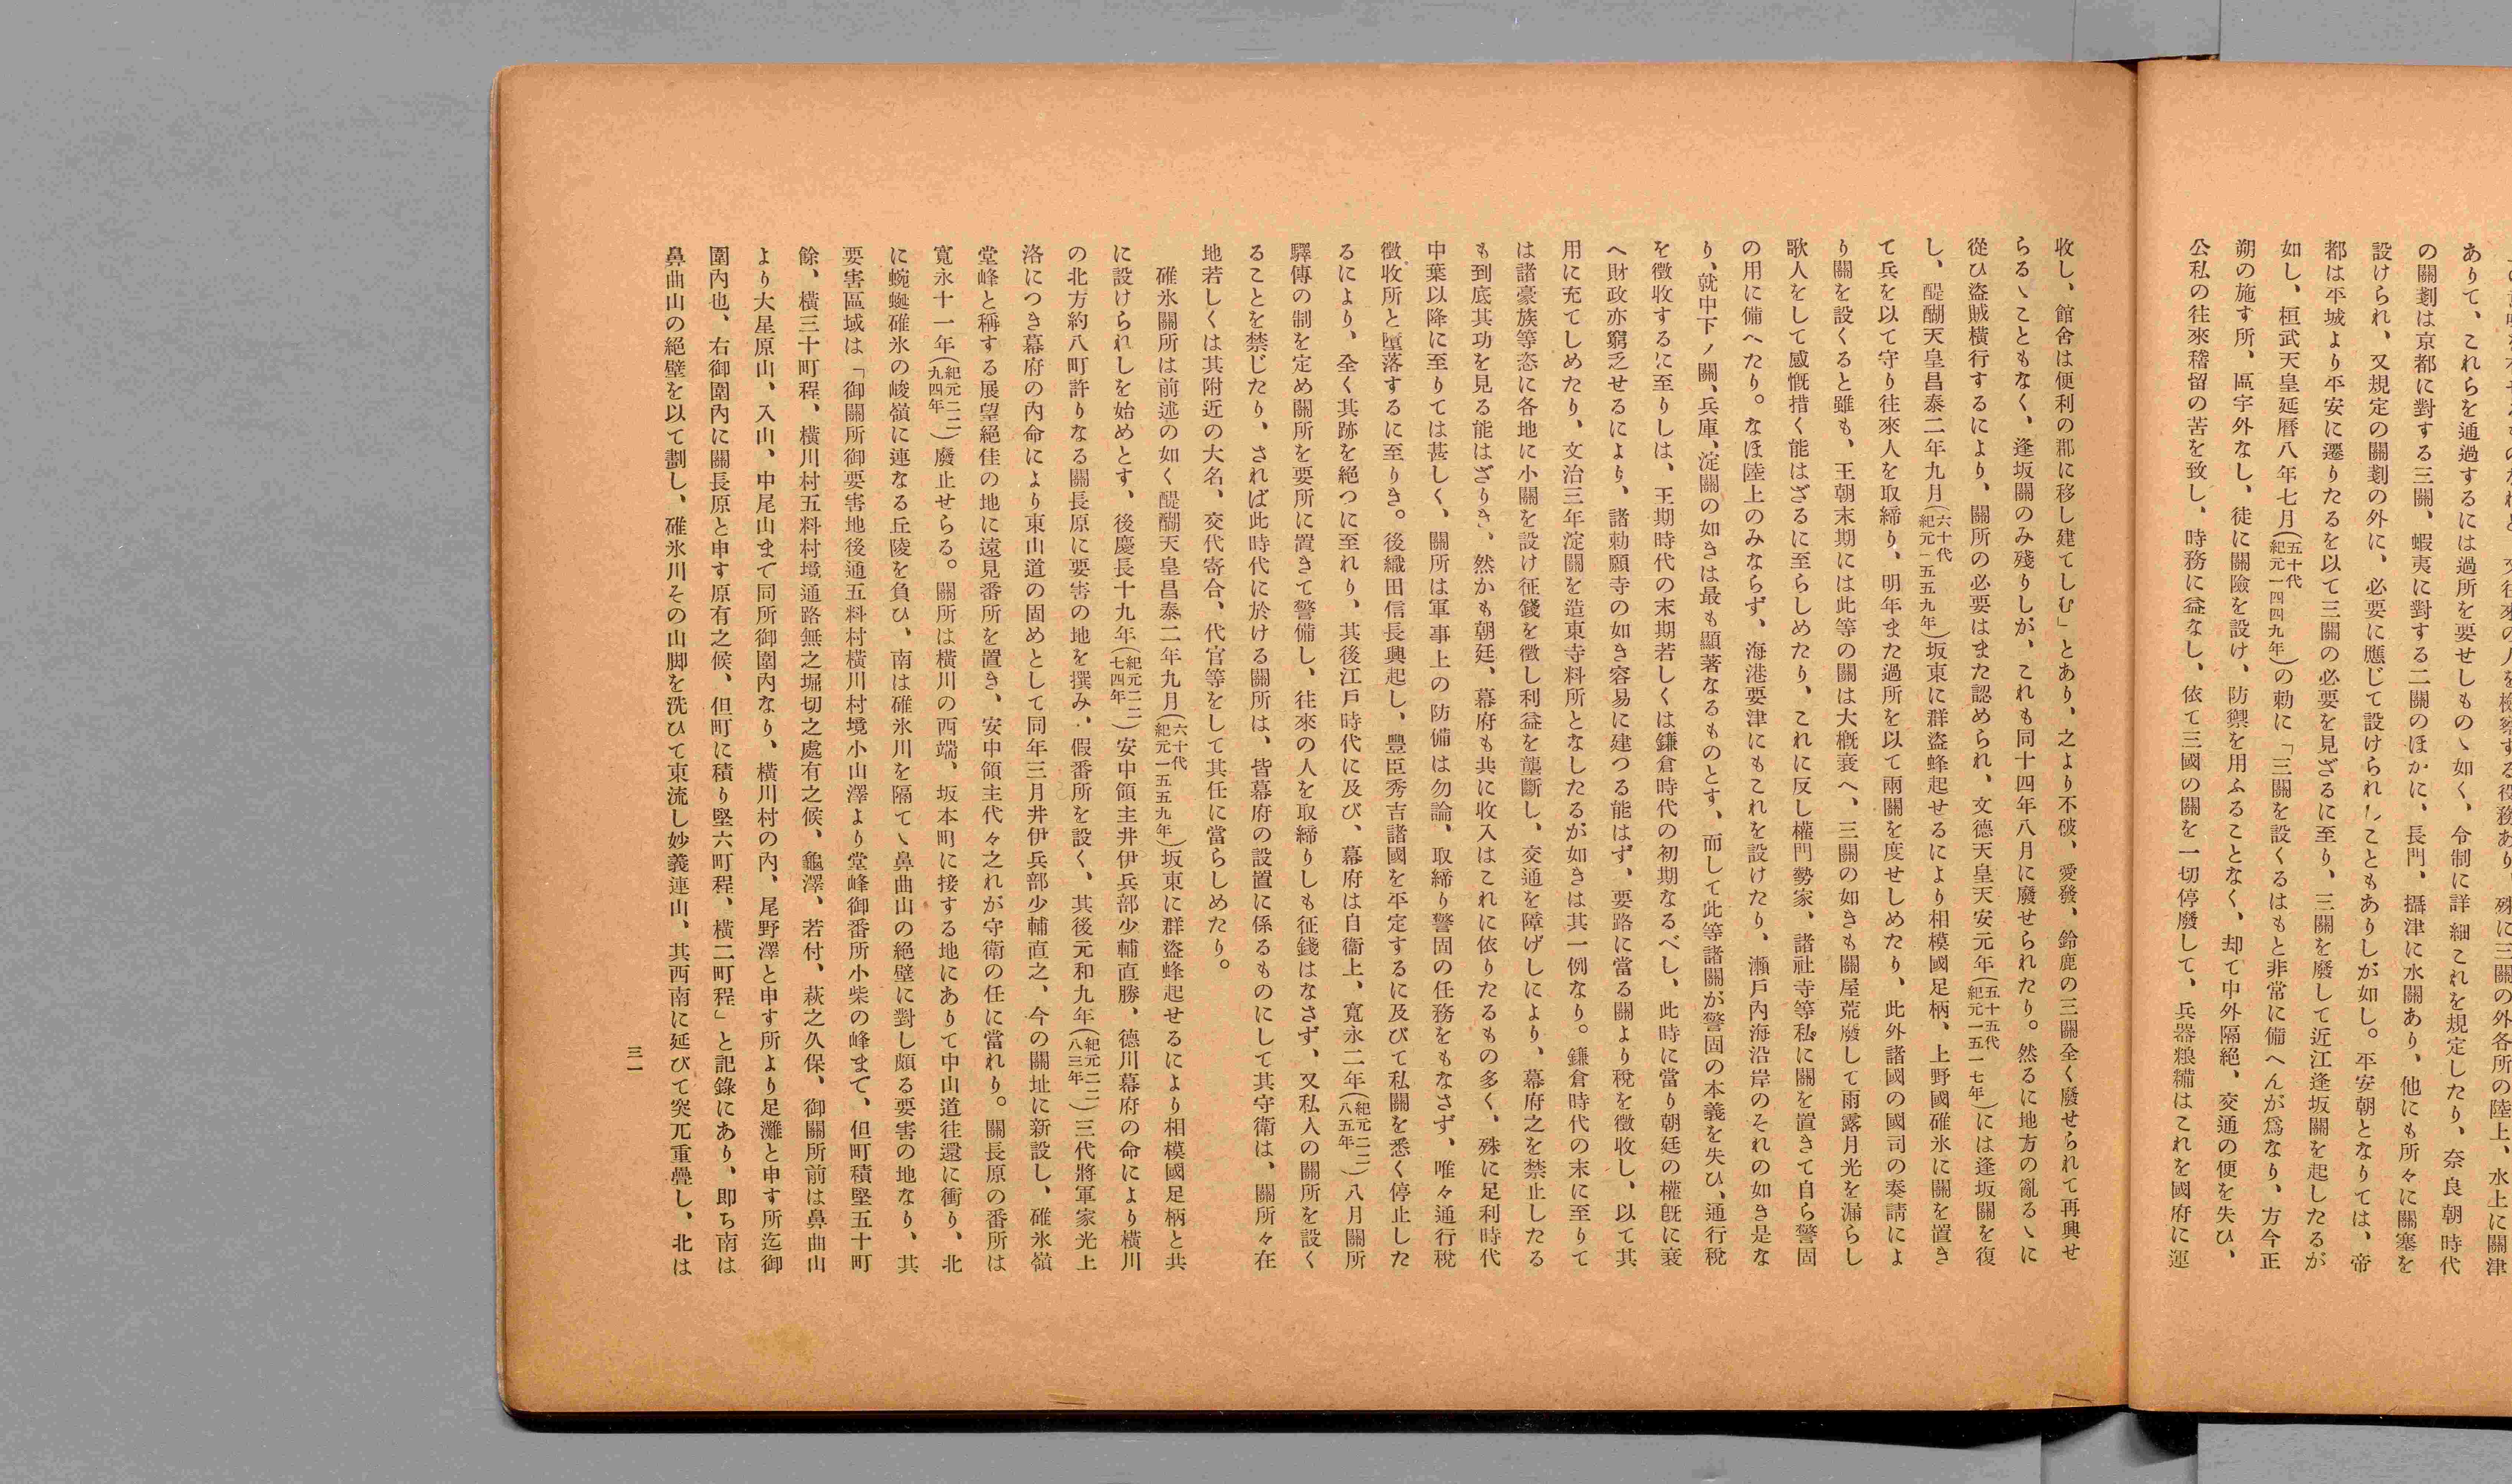 ありて、これらを通過するには過所を要せしものゝ如く、令制に詳細これを規定したり、奈良朝時代
の關剗は京都に對する三關、蝦夷に對する二關のほかに、長門、攝津に水關あり、他にも所々に關塞を
設けられ、又規定の關剗の外に、必要に應じて設けられしこともありしが如し。平安朝となりては、帝
都は平城より平安に遷りたるを以て三關の必要を見ざるに至り、三關を廢して近江逢坂關を起したるが
如し、桓武天皇延曆八年七月(五十代紀元一四四九年)の勅に「三關を設くるはもと非常に備へんが爲なり、方今正
朔の施す所、區宇外なし、徒に關險を設け、防禦を用ふることなく、却て中外隔絶、交通の便を失ひ、
公私の往來稽留の苦を致し、時務に益なし、依て三國の關を一切停廢して、兵器粮糒はこれを國府に運
收し、館舍は便利の郡に移し建てしむ」とあり、之より不破、愛發、鈴鹿の三關全く廢せられて再興せ
らるゝこともなく、逢坂關のみ殘りしが、これも同十四年八月に廢せられたり。然るに地方の亂るゝに
從ひ盜賊橫行するにより、關所の必要はまた認められ、文德天皇天安元年(五十五代紀元一五一七年)には逢坂關を復
し、醍醐天皇昌泰二年九月(六十代紀元一五五九年)坂東に群盜蜂起せるにより相模國足柄、上野國碓氷に關を置き
て兵を以て守り往來人を取締り、明年また過所を以て兩關を度せしめたり、此外諸國の國司の奏請によ
り關を設くると雖も、王朝末期には此等の關は大槪衰へ、三關の如きも關屋荒廢して雨露月光を漏らし
歌人をして感慨措く能はざるに至らしめたり、これに反し權門勢家、諸社寺等私に關を置きて自ら警固
の用に備へたり。なほ陸上のみならず、海港要津にもこれを設けたり、瀨戶內海沿岸のそれの如き是な
り、就中下ノ關、兵庫、淀關の如きは最も顯著なるものとす、而して此等諸關が警固の本義を失ひ、通行稅
を徵收するに至りしは、王期時代の末期若しくは鎌倉時代の初期なるべし、此時に當り朝廷の權旣に衰
へ財政亦窮乏せるにより、諸勅願寺の如き容易に建つる能はず、要路に當る關より稅を徵收し、以て其
用に充てしめたり、文治三年淀關を造東寺料所となしたるが如きは其一例なり。鎌倉時代の末に至りて
は諸豪族等恣に各地に小關を設け征錢を徵し利益を壟斷し、交通を障げしにより、幕府之を禁止したる
も到底其功を見る能はざりき、然かも朝廷、幕府も共に收入はこれに依りたるもの多く、殊に足利時代
中葉以降に至りては甚しく、關所は軍事上の防備は勿論、取締り警固の任務をもなさず、唯々通行稅
徵收所と墮落するに至りき。後織田信長興起し、豐臣秀吉諸國を平定するに及びて私關を悉く停止した
るにより、全く其跡を絶つに至れり、其後江戶時代に及び、幕府は自衞上、寬永二年(紀元二二八五年)八月關所
驛傳の制を定め關所を要所に置きて警備し、往來の人を取締りしも征錢はなさず、又私人の關所を設く
ることを禁じたり、されば此時代に於ける關所は、皆幕府の設置に係るものにして其守衞は、關所々在
地若しくは其附近の大名、交代寄合、代官等をして其任に當らしめたり。
碓氷關所は前述の如く醍醐天皇昌泰二年九月(六十代紀元一五五九年)坂東に群盜蜂起せるにより相模國足柄と共
に設けられしを始めとす、後慶長十九年(紀元二二七四年)安中領主井伊兵部少輔直勝、德川幕府の命により橫川
の北方約八町許りなる關長原に要害の地を撰み、假番所を設く、其後元和九年(紀元二二八三年)三代將軍家光上
洛につき幕府の內命により東山道の固めとして同年三月井伊兵部少輔直之、今の關址に新設し、碓氷嶺
堂峰と稱する展望絶佳の地に遠見番所を置き、安中領主代々之れが守衞の任に當れり。關長原の番所は
寬永十一年(紀元二二九四年)廢止せらる。關所は橫川の西端、坂本町に接する地にありて中山道往還に衝り、北
に蜿蜒碓氷の峻嶺に連なる丘陵を負ひ、南は碓氷川を隔てゝ鼻曲山の絶壁に對し頗る要害の地なり、其
要害區域は「御關所御要害地後通五料村橫川村境小山澤より堂峰御番所小柴の峰まで、但町積堅五十町
餘、橫三十町程、橫川村五料村境通路無之堀切之處有之候、龜澤、若付、萩之久保、御關所前は鼻曲山
より大星原山、入山、中尾山まで同所御圍內なり、橫川村の內、尾野澤と申す所より足灘と申す所迄御
圍內也、右御圍內に關長原と申す原有之候、但町に積り堅六町程、橫二町程」と記錄にあり、卽ち南は
鼻曲山の絶壁を以て劃し、碓氷川その山脚を洗ひて東流し妙義連山、其西南に延びて突兀重疊し、北は
三一